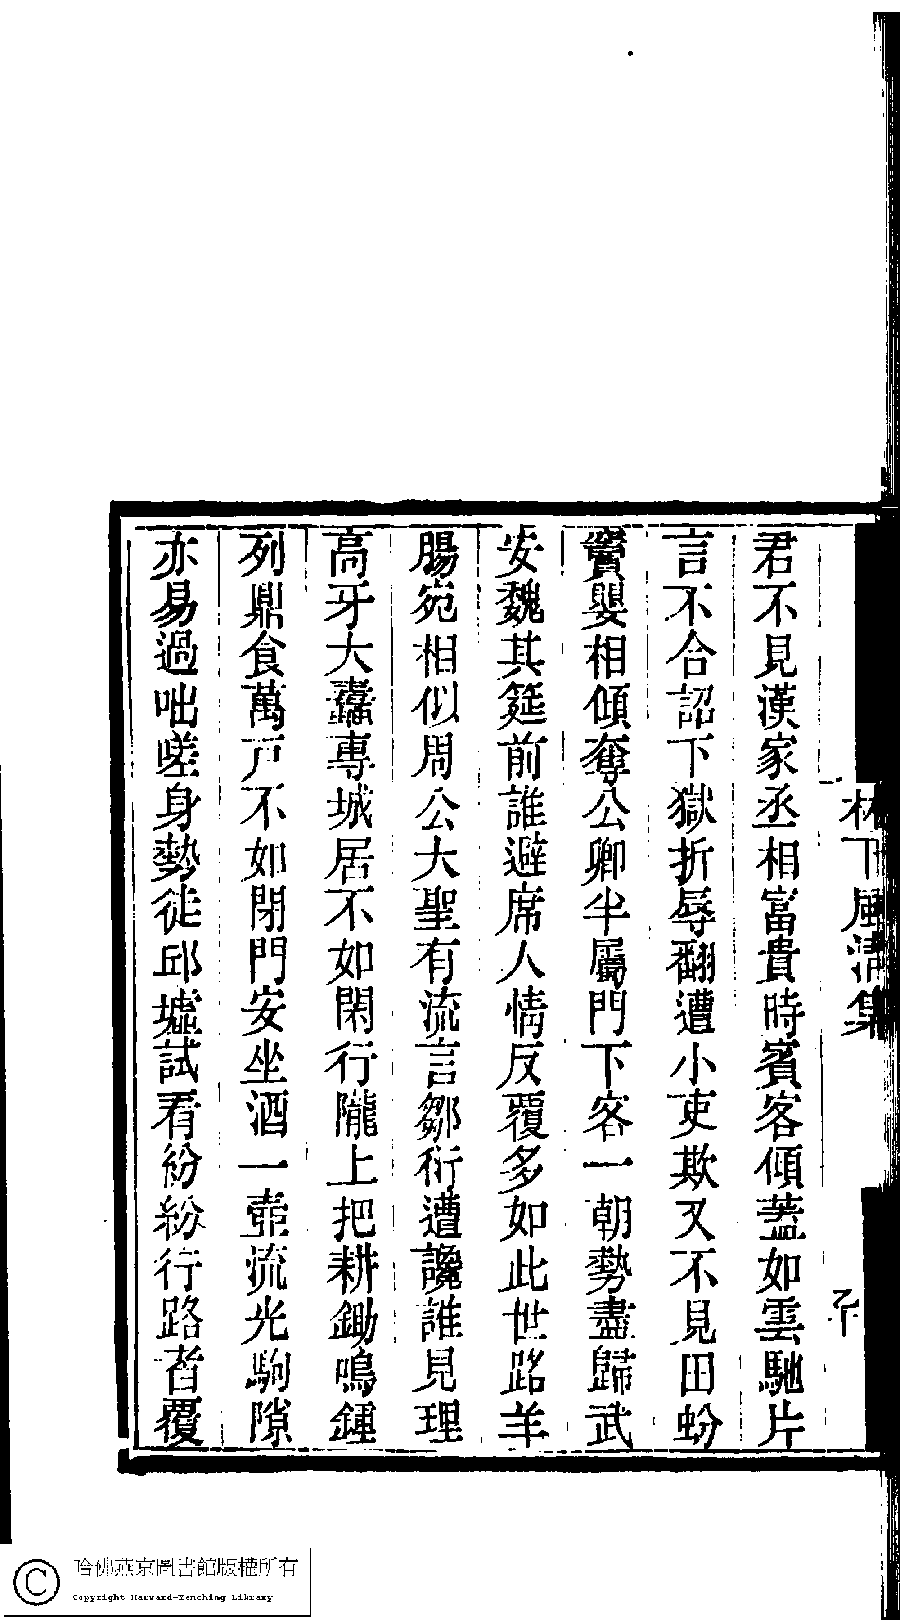 林下風清集
君不見漢家丞相富貴時賓客傾蓋如雲馳片
言不合詔下獄折辱翻遭小吏欺又不見田蚡
竇嬰相傾奪公卿半屬門下客一朝勢盡歸武
安魏其筵前誰避席人情反覆多如此世路羊
腸宛相似周公大聖有流言鄒衍遭讒誰見理
高牙大纛專城居不如閑行隴上把耕鋤鳴鍾
列鼎食萬戶不如閉門安坐酒一壺流光駒隙
亦易過咄嗟身勢徒邱墟試看紛紛行路者覆
哈佛燕京圖書館版權所有
Copyright Harvard-Yenching Library